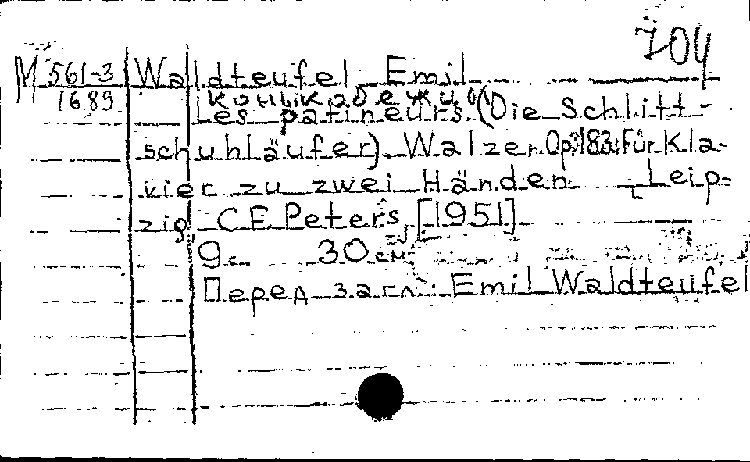 704
M 561-3 Waldteufel Emil
1689
Конькобежцы
Les patineurs. (Die Schlitt-
schuhläufer). Walzer. Op. 183. Für Kla-
vier zu zwei Händen. Leip-
zig, C.F. Peters, [1951]
9 с. 30 см
Перед загл.: Emil Waldteufel